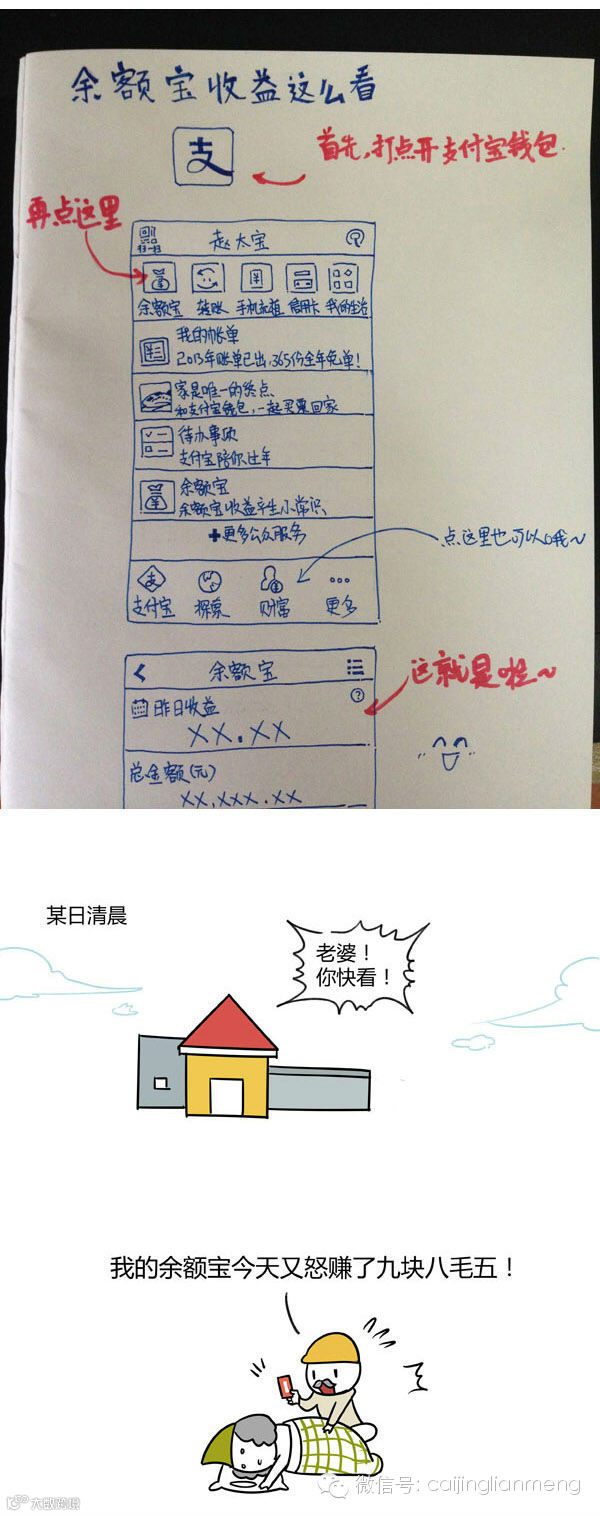 余额宝收益这么看
支
首先,打点开支付宝钱包.
再点这里
扫一扫
赵大宝
余额宝 转账 手机充值 信用卡 我的生活
我的帐单
2013年账单已出,365份全年免单!
家是唯一的终点
和支付宝钱包,一起买票回家
待办事项
支付宝陪你过年
余额宝
余额宝收益产生小常识
+更多公众服务
点这里也可以哦~
支付宝 探索 财富 更多
余额宝
这就是啦~
昨日收益
XX.XX
总金额(元)
XX,XXX.XX
某日清晨
老婆!
你快看!
我的余额宝今天又怒赚了九块八毛五!
微信号: caijinglianmeng
大数跨境